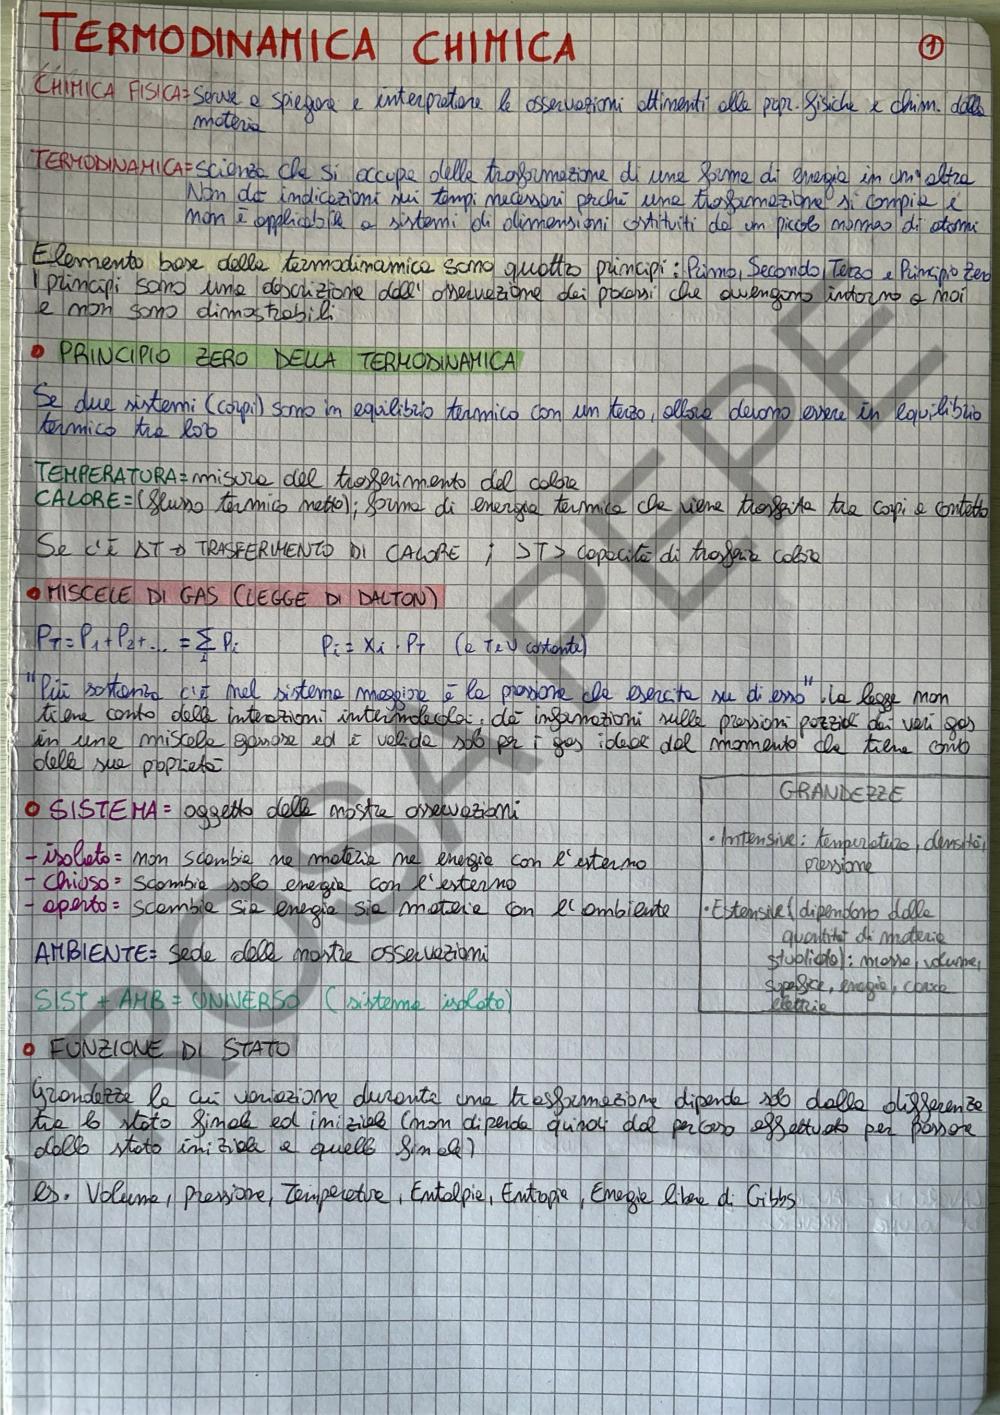 TERMODINAMICA CHIMICA
1
CHIMICA FISICA= Serve a spiegare e interpretare le osservazioni attinenti alle propr. fisiche e chim. della
materia
TERMODINAMICA= scienza che si occupa della trasformazione di una forma di energia in un'altra
Non dà indicazioni sui tempi necessari perché una trasformazione si compia e
non è applicabile a sistemi di dimensioni costituiti da un piccolo numero di atomi
Elemento base della termodinamica sono quattro principi: Primo, Secondo, Terzo e Principio Zero
I principi sono una descrizione dell'osservazione dei processi che avvengono intorno a noi
e non sono dimostrabili
• PRINCIPIO ZERO DELLA TERMODINAMICA
Se due sistemi (corpi) sono in equilibrio termico con un terzo, allora devono essere in equilibrio
termico tra loro
TEMPERATURA= misura del trasferimento del calore
CALORE= (flusso termico netto); forma di energia termica che viene trasferita tra corpi a contatto
Se c'è ΔT → TRASFERIMENTO DI CALORE ; >T > capacità di trasferire calore
• MISCELE DI GAS (LEGGE DI DALTON)
P_T = P_1 + P_2 + ... = Σ_i P_i P_i = X_i · P_T (a T e V costante)
"Più sostanza c'è nel sistema maggiore è la pressione che esercita su di esso". La legge non
tiene conto delle interazioni intermolecolari, dà informazioni sulle pressioni parziali dei vari gas
in una miscela gassosa ed è valida solo per i gas ideali dal momento che tiene conto
delle sue proprietà
• SISTEMA= oggetto delle nostre osservazioni
- isolato= non scambia ne materia ne energia con l'esterno
- chiuso= scambia solo energia con l'esterno
- aperto= scambia sia energia sia materia con l'ambiente
AMBIENTE= Sede delle nostre osservazioni
SIST + AMB = UNIVERSO (sistema isolato)
GRANDEZZE
• Intensive: temperatura, densità,
pressione
• Estensive (dipendono dalla
quantità di materia
studiata): massa, volume,
superfice, energia, carica
elettrica
• FUNZIONE DI STATO
Grandezze la cui variazione durante una trasformazione dipende solo dalla differenza
tra lo stato finale ed iniziale (non dipende quindi dal percorso effettuato per passare
dallo stato iniziale a quello finale)
es. Volume, pressione, Temperatura, Entalpia, Entropia, Energia libera di Gibbs
ROSA PEPE